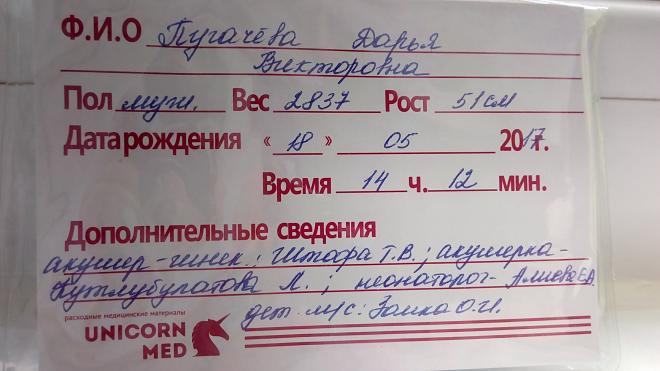 Ф.И.О Пугачёва Дарья
Викторовна
Пол муж. Вес 2837 Рост 51 см
Дата рождения « 18 » 05 2017г.
Время 14 ч. 12 мин.
Дополнительные сведения
акушер-гинек.: Штофа Т.В.; акушерка-
Кутлубулатова Л.; неонатолог- Алиева Е.А.
дет. м/с: Заика О.И.
расходные медицинские материалы
UNICORN
MED